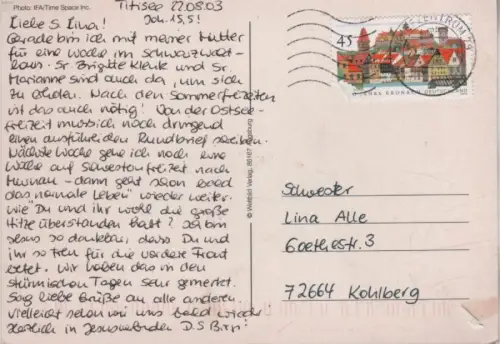 Photo: IFA/Time Space Inc.
Titisee 22.08.03
Joh. 15,5!
Liebe S. Lina!
Gerade bin ich mit meiner Mutter
für eine Woche im Schwarzwald-
haus. Sr. Brigitte Klenk und Sr.
Marianne sind auch da, um sich
zu erholen. Nach den Sommerfreizeiten
ist das auch nötig! Von der Ostsee-
freizeit muss ich noch dringend
einen ausführlichen Rundbrief schreiben.
Nächste Woche gehe ich noch eine
Woche auf Schwesternfreizeit nach
- dann geht schon bald
"das normale Leben" wieder weiter.
Wie Du und ihr wohl die große
Hitze überstanden habt? Ich bin
Jesus so dankbar, dass Du und
ihr so treu für die vordere Front
betet. Wir haben das in den
stürmischen Tagen sehr gemerkt.
Sag liebe Grüße an alle anderen
vielleicht sehen wir uns bald wieder
Herzlich in Jesus verbunden D. S
© Weltbild Verlag, 86167 Augsburg
45
Schwester
Lina Alle
Goethestr. 3
72664 Kohlberg